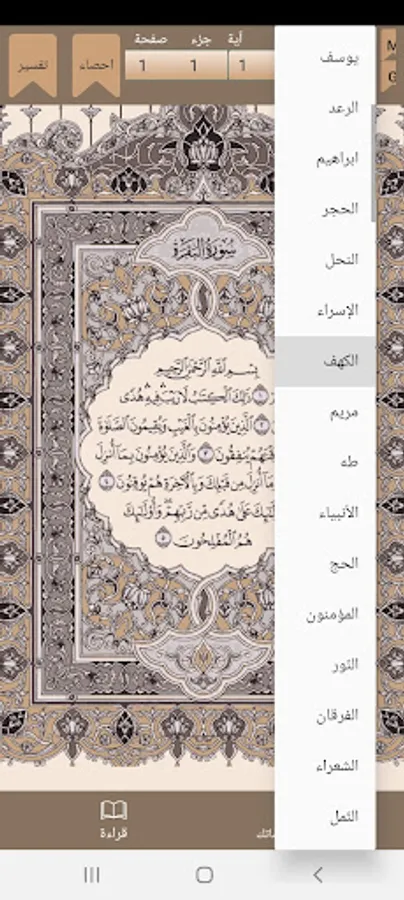 آية جزء صفحة
1 1 1
احصاء
تفسير
M
G
سُورَةُ البَقَرَةِ
بِسْمِ اللَّهِ الرَّحْمَٰنِ الرَّحِيمِ
ذَٰلِكَ الْكِتَٰبُ لَا رَيْبَ ۛ فِيهِ ۛ هُدًى
١ ٢ الَّذِينَ يُؤْمِنُونَ بِالْغَيْبِ وَيُقِيمُونَ الصَّلَوٰةَ
يُنفِقُونَ ٣ وَالَّذِينَ يُؤْمِنُونَ بِمَا أُنزِلَ
أُنزِلَ مِن قَبْلِكَ وَبِالْآخِرَةِ هُمْ يُوقِنُونَ ٤
عَلَىٰ هُدًى مِّن رَّبِّهِمْ ۖ وَأُولَٰئِكَ
هُمُ الْمُفْلِحُونَ ٥
يوسف
الرعد
ابراهيم
الحجر
النحل
الإسراء
الكهف
مريم
طه
الأنبياء
الحج
المؤمنون
النور
الفرقان
الشعراء
النمل
قراءة